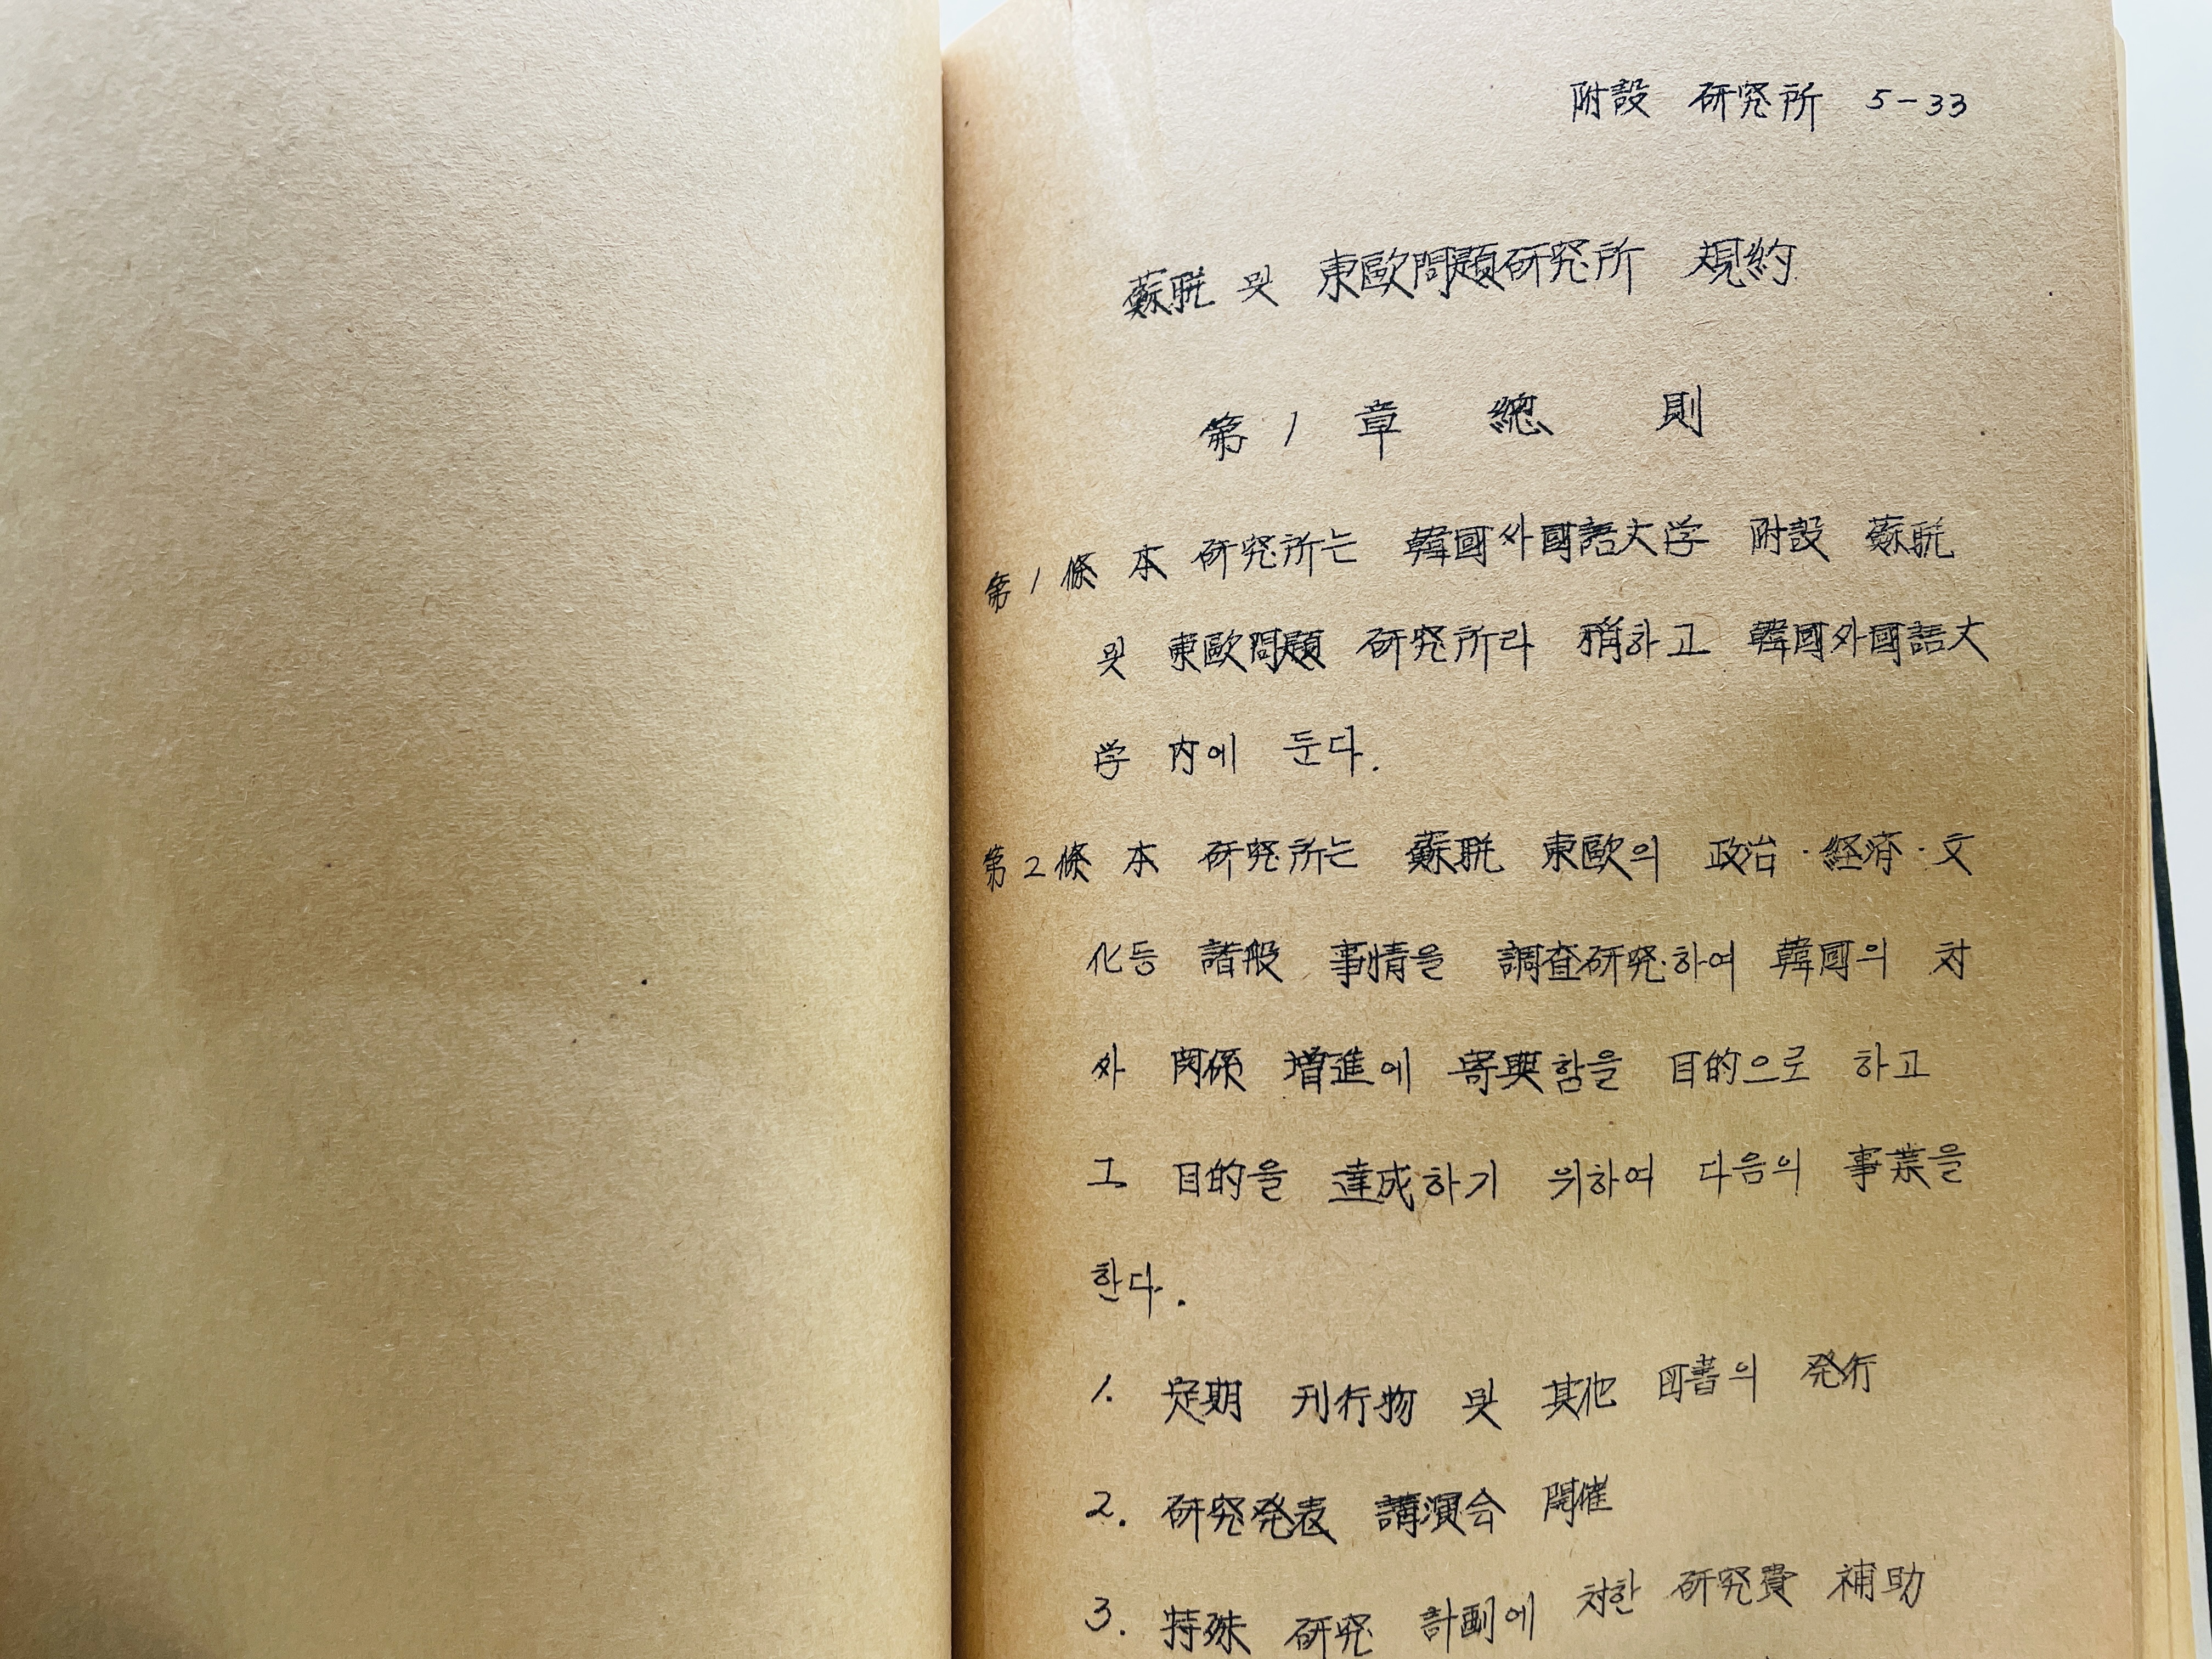 附設 研究所 5-33
蘇聯 및 東歐問題研究所 規約
第 1 章 總 則
第 1 條 本 研究所는 韓國外國語大学 附設 蘇聯
및 東歐問題 研究所라 稱하고 韓國外國語大
学 內에 둔다.
第 2 條 本 研究所는 蘇聯 東歐의 政治·経済·文
化등 諸般 事情을 調査研究하여 韓國의 対
外 関係 增進에 寄與함을 目的으로 하고
그 目的을 達成하기 위하여 다음의 事業을
한다.
1. 定期 刊行物 및 其他 図書의 発行
2. 研究発表 講演会 開催
3. 特殊 研究 計劃에 対한 研究費 補助